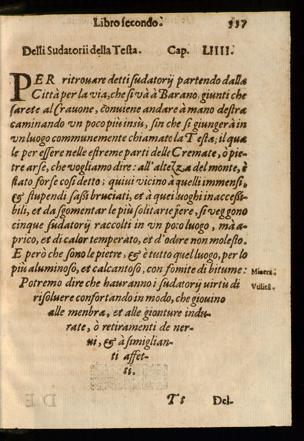 Libro secondo. 337
Delli Sudatorii della Testa. Cap. LIIII.
PER ritrouare detti sudatorij partendo dalla
Città per la via, che si và à Barano, giunti che
sarete al Crauone, cōuiene andare à mano destra
caminando vn poco più insù, sin che si giungerà in
vn luogo communemente chiamato la Testa; il qua
le per essere nelle estreme parti delle Cremate, ò pie-
tre arse, che vogliamo dire: all'altezza del monte, è
stato forse cosi detto: quiui vicino à quelli immensi,
& stupendi sassi bruciati, et à quei luoghi inaccessi-
bili, et da sgomentar le più solitarie fere, si veggono
cinque sudatorij raccolti in vn poco luogo, mà a-
prico, et di calor temperato, et d'odore non molesto.
E però che sono le pietre, & è tutto quel luogo, per lo
più aluminoso, et calcantoso, con fomite di bitume: Minera.
Potremo dire che hauranno i sudatorij uirtù di Vtilità.
risoluere confortando in modo, che giouino
alle membra, et alle gionture indu-
rate, ò retiramenti de ner-
ui, & à simiglian-
ti affet-
ti.
Del-